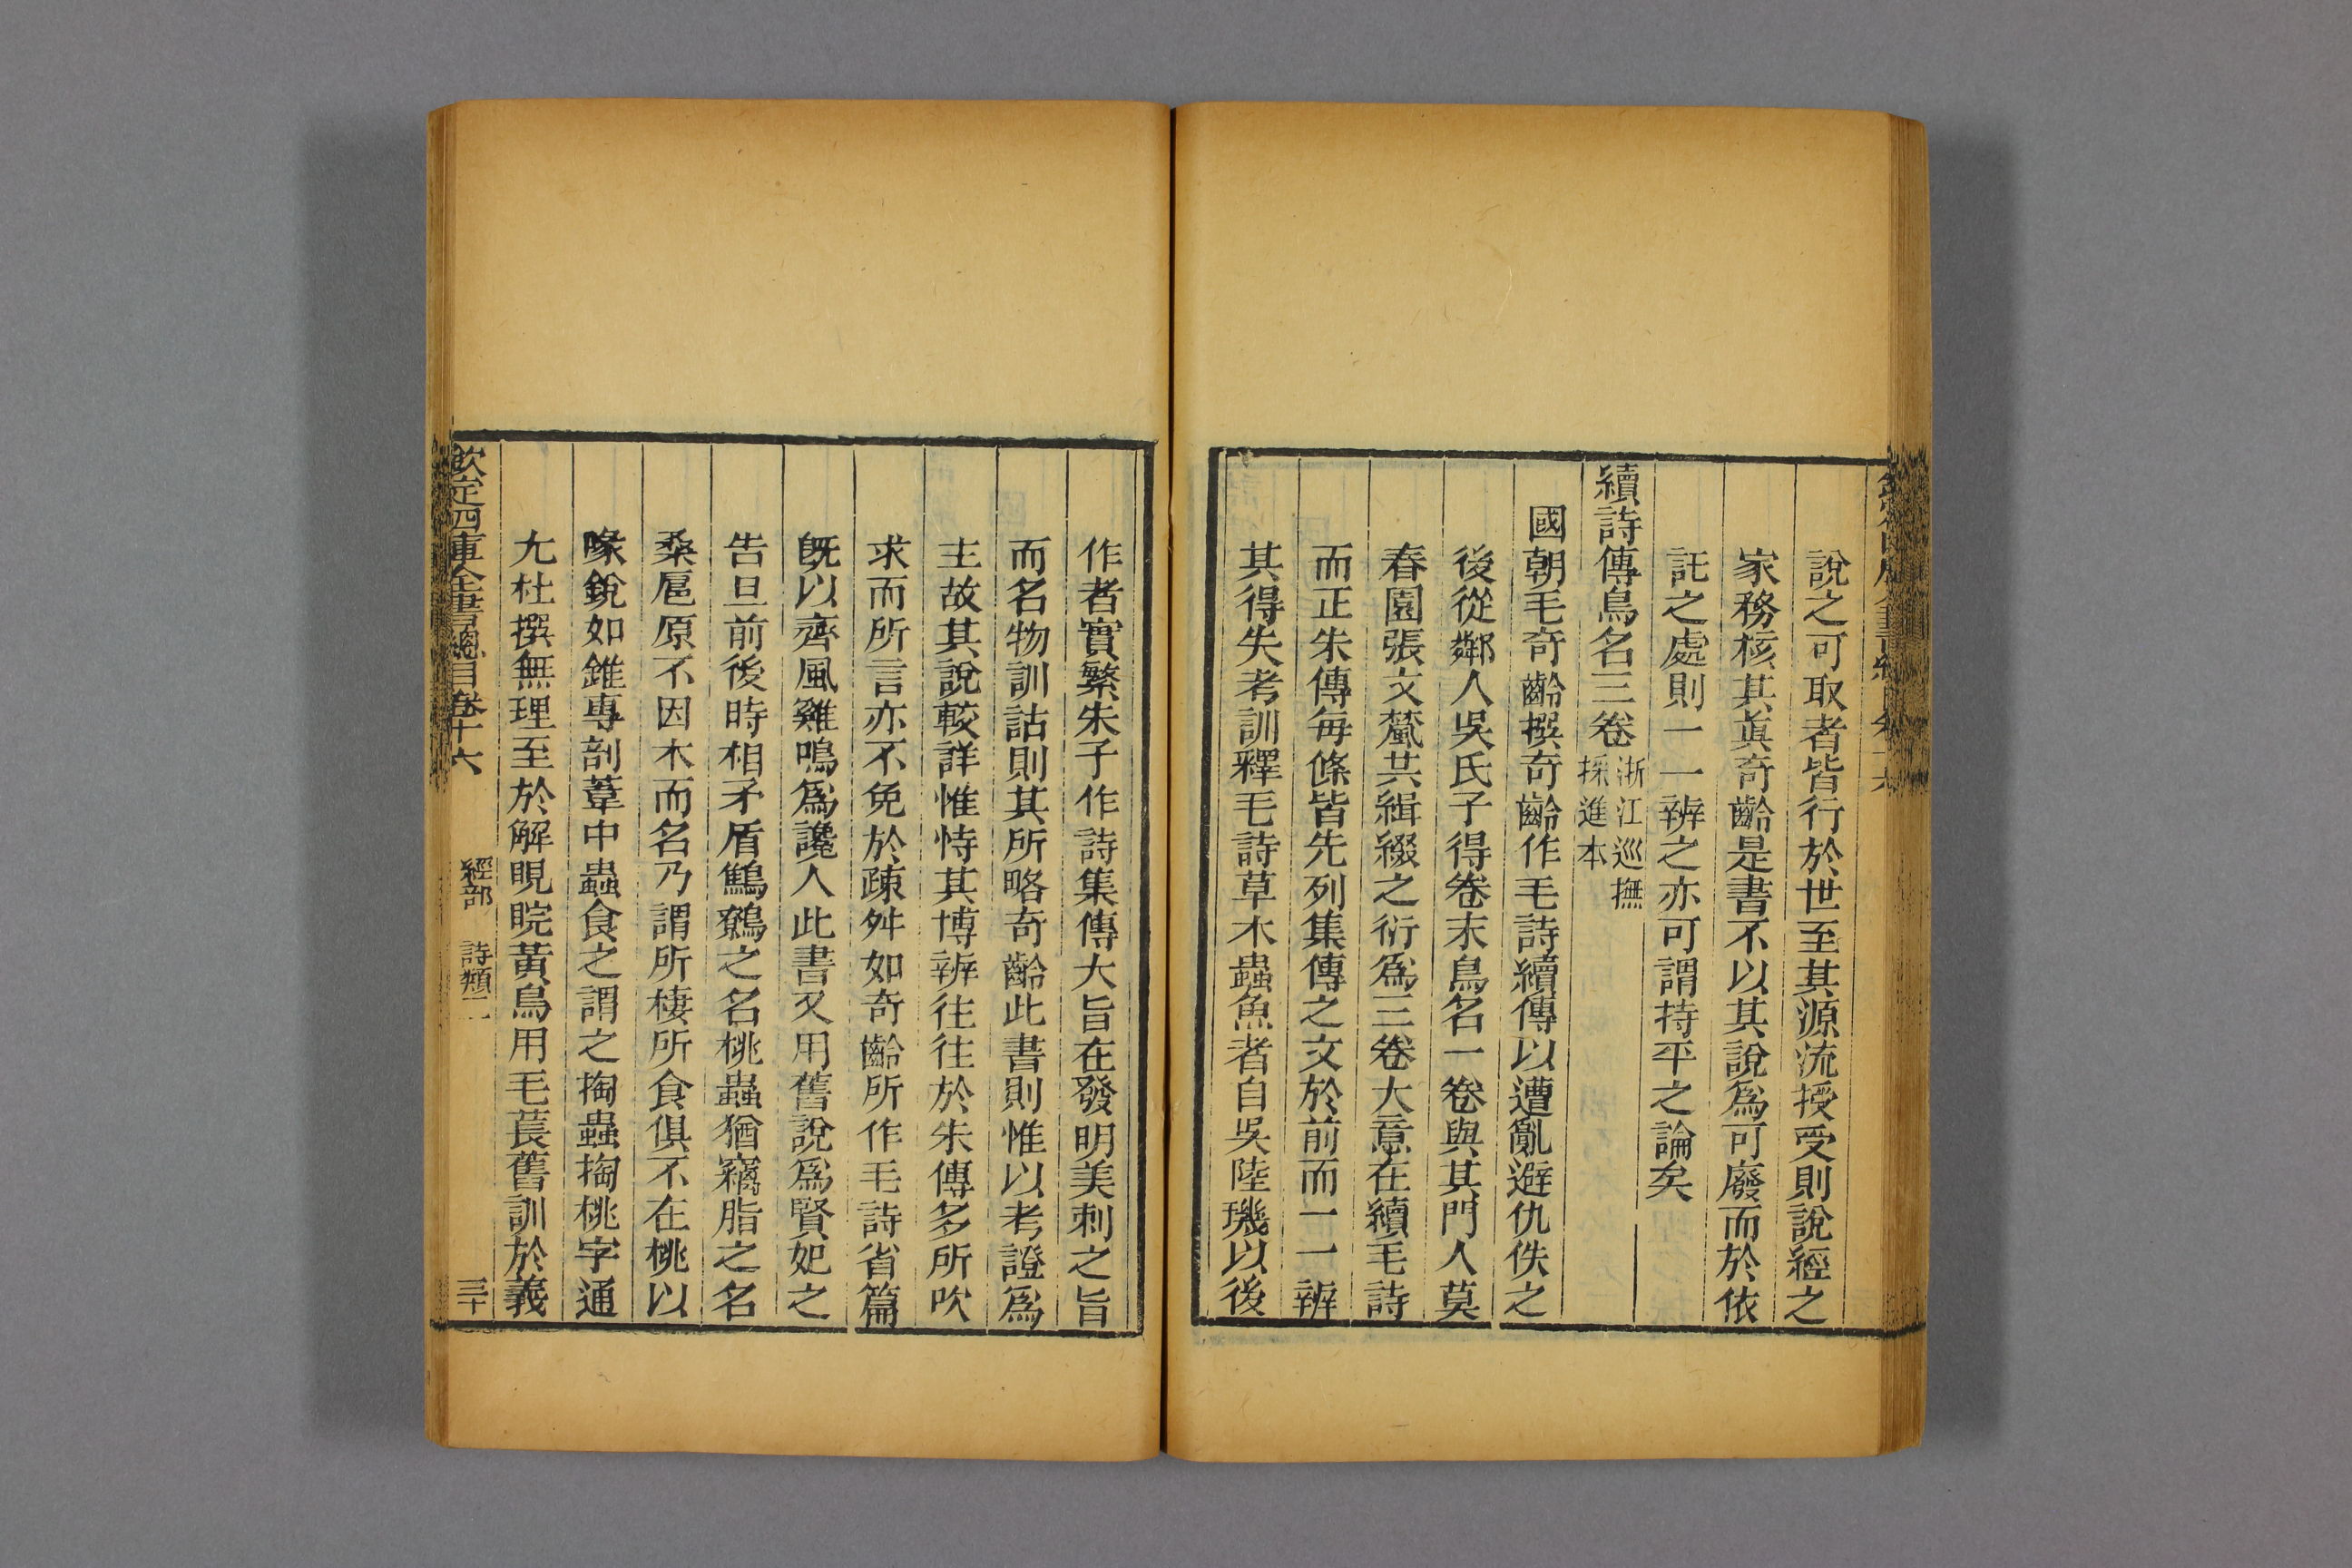 說之可取者皆行於世至其源流授受則說經之
家務核其真奇齡是書不以其說爲可廢而於依
託之處則一一辨之亦可謂持平之論矣
續詩傳鳥名三卷
浙江巡撫
採進本
國朝毛奇齡撰奇齡作毛詩續傳以遭亂避仇佚之
後從鄰人吳氏子得卷末鳥名一卷與其門人莫
春園張文蘪共緝綴之衍爲三卷大意在續毛詩
而正朱傳每條皆先列集傳之文於前而一一辨
其得失考訓釋毛詩草木蟲魚者自吳陸璣以後
作者實繁朱子作詩集傳大旨在發明美刺之旨
而名物訓詁則其所略奇齡此書則惟以考證爲
主故其說較詳惟恃其博辨往往於朱傳多所吹
求而所言亦不免於疎舛如奇齡所作毛詩省篇
旣以齊風雞鳴爲讒人此書又用舊說爲賢妃之
告旦前後時相矛盾鷦鷯之名桃蟲猶竊脂之名
桑扈原不因木而名乃謂所棲所食俱不在桃以
喙銳如錐專剖葦中蟲食之謂之掏蟲掏桃字通
尢杜撰無理至於解睍睆黃鳥用毛萇舊訓於義
欽定四庫全書總目 卷十六
經部 詩類二
三十